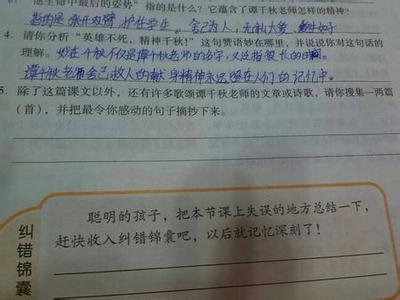 他生命中最后的姿势”指的是什么?它蕴含了谭千秋老师怎样的精神?
指的是 张开双臂 护住学生。舍己为人,无私大爱,
4. 请你分析“英雄不死,精神千秋!”这句赞语妙在哪里,并说说你对这句话的
理解。妙在千秋不仅是谭千秋老师的名字,又是指很长的时间。
谭千秋老师舍己救人的献身精神永远留在人们的记忆中。
5. 除了这篇课文以外,还有许多歌颂谭千秋老师的文章或诗歌,请你搜集一两篇
(首),并把最令你感动的句子摘抄下来。
纠错锦囊
聪明的孩子,把本节课上失误的地方总结一下,
赶快收入纠错锦囊吧,以后就记忆深刻了!